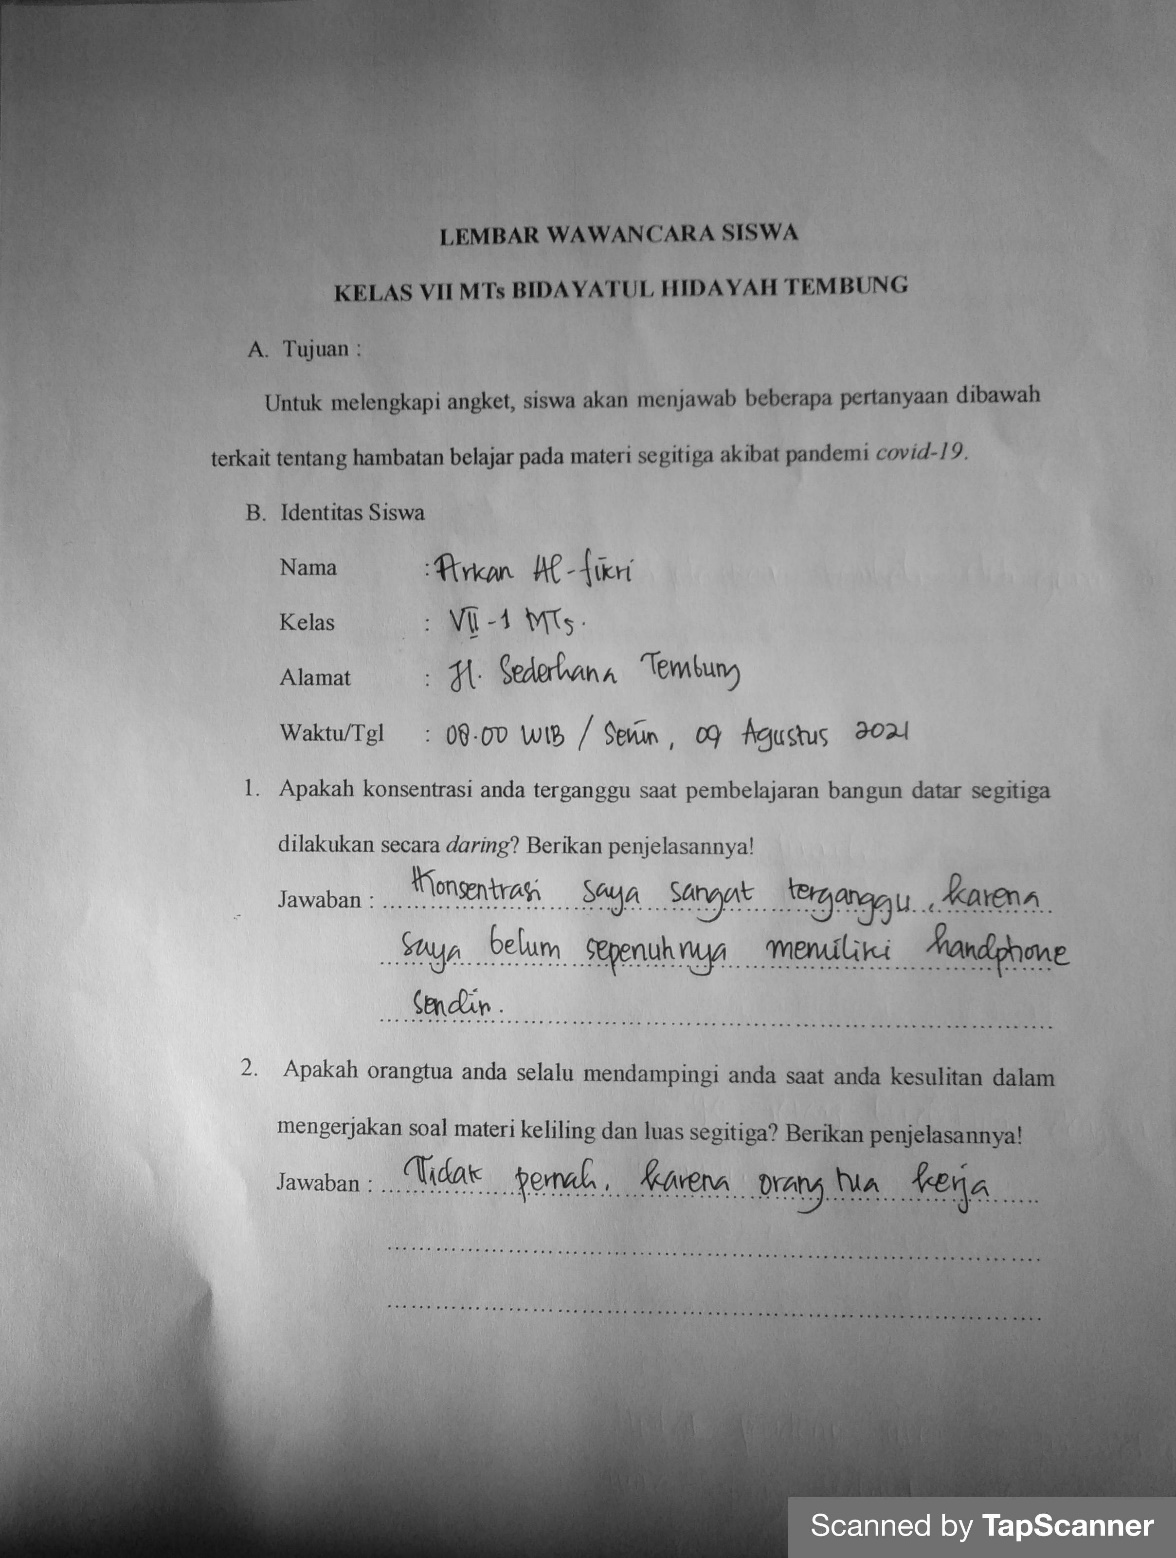 LEMBAR WAWANCARA SISWA
KELAS VII MTs BIDAYATUL HIDAYAH TEMBUNG
A. Tujuan :
Untuk melengkapi angket, siswa akan menjawab beberapa pertanyaan dibawah
terkait tentang hambatan belajar pada materi segitiga akibat pandemi covid-19.
B. Identitas Siswa
Nama : Arkan Al-fikri
Kelas : VII-1 MTs.
Alamat : Jl. Sederhana Tembung
Waktu/Tgl : 08.00 WIB / Senin, 09 Agustus 2021
1. Apakah konsentrasi anda terganggu saat pembelajaran bangun datar segitiga
dilakukan secara daring? Berikan penjelasannya!
Jawaban : Konsentrasi saya sangat terganggu, karena
saya belum sepenuhnya memiliki handphone
sendiri.
2. Apakah orangtua anda selalu mendampingi anda saat anda kesulitan dalam
mengerjakan soal materi keliling dan luas segitiga? Berikan penjelasannya!
Jawaban : Tidak pernah, karena orang tua kerja
Scanned by TapScanner